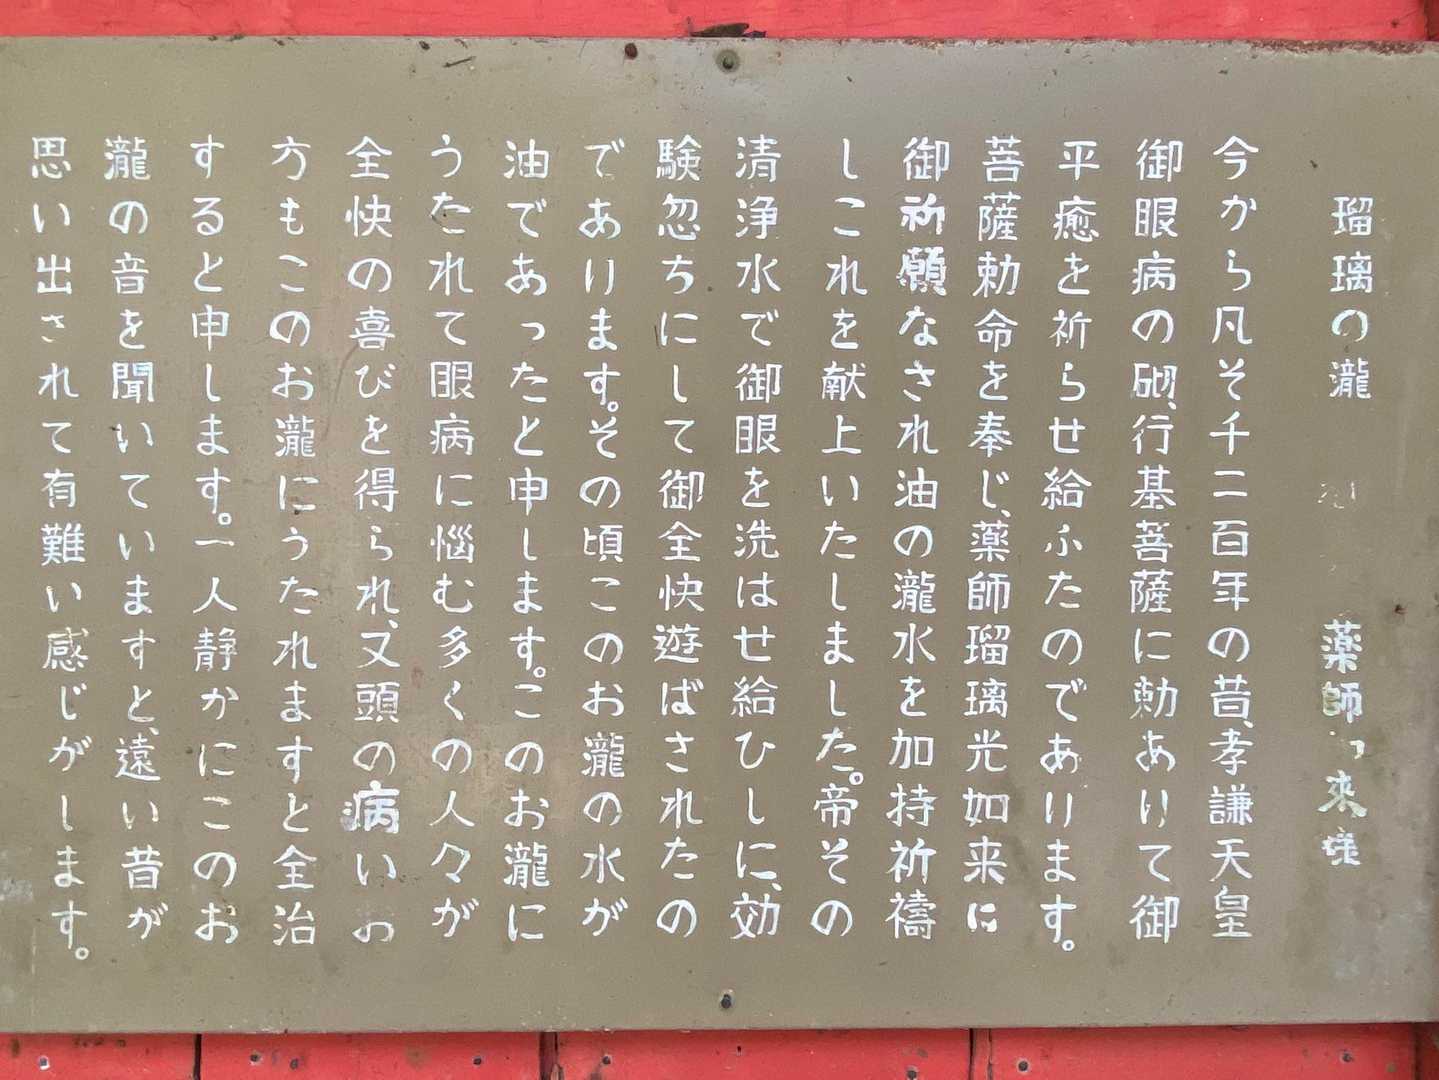 瑠璃の瀧 薬師 来様
今から凡そ千二百年の昔、孝謙天皇
御眼病の砌、行基菩薩に勅あけて御
平癒を祈らせ給ふたのであります。
菩薩勅命を奉じ、薬師瑠璃光如来に
御祈願なされ油の瀧水を加持祈禱
しこれを献上いたしました。帝その
清浄水で御眼を洗はせ給ひしに、効
験忽ちにして御全快遊ばされたの
であります。その頃このお瀧の水が
油であったと申します。このお瀧に
うたれて眼病に悩む多くの人々が
全快の喜びを得られ、又頭の病いお
方もこのお瀧にうたれますと全治
すると申します。一人静かにこのお
瀧の音を聞いていますと、遠い昔が
思い出されて有難い感じがします。